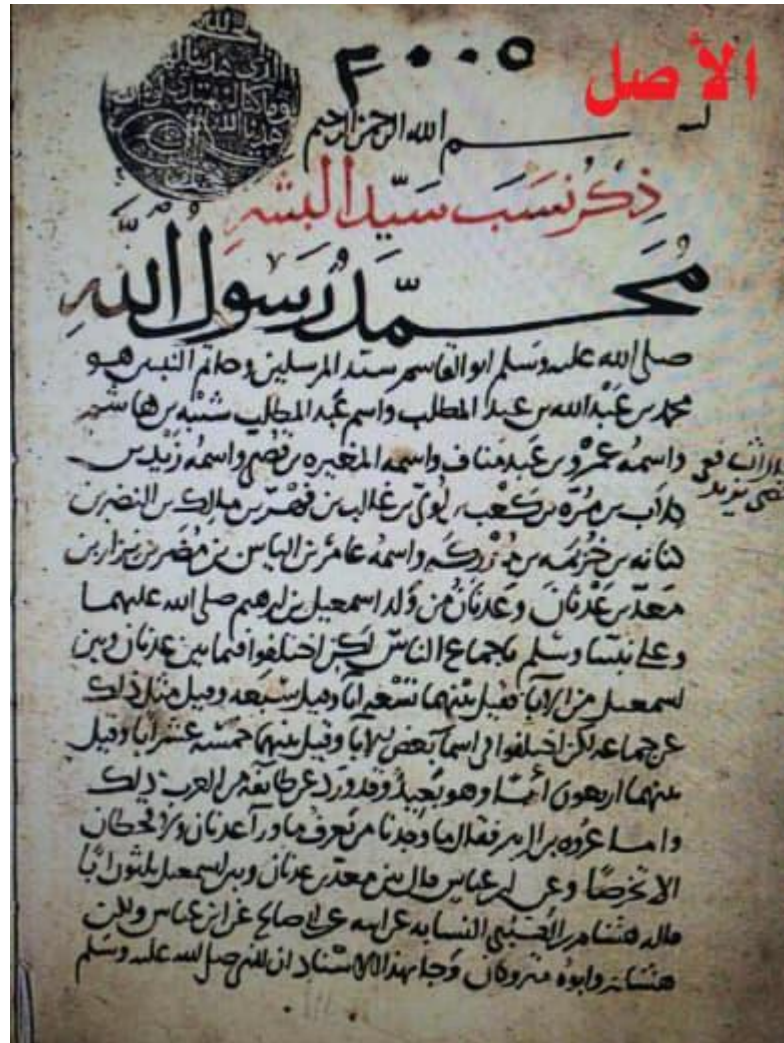 الأصل
٣٠٠٥
بسم الله الرحمن الرحيم
ذكر نسب سيد البشر
محمد رسول الله
صلى الله عليه وسلم ابو القاسم سيد المرسلين وخاتم النبيين هو
محمد بن عبد الله بن عبد المطلب واسم عبد المطلب شيبة بن هاشم
واسمه عمرو بن عبد مناف واسمه المغيرة بن قصي واسمه زيد بن
كلاب بن مرة بن كعب بن لؤي بن غالب بن فهر بن مالك بن النضر بن
كنانه بن خزيمه بن مدركه واسمه عامر بن الياس بن مضر بن نزار بن
معد بن عدنان وعدنان من ولد اسمعيل بن ابرهيم صلى الله عليهما
وعلى نبينا وسلم باجماع الناس لكن اختلفوا فيما بين عدنان وبين
اسمعيل من الابا فقيل بينهما تسعه آبا وقيل سبعه وقيل مثل ذلك
عن جماعه لكن اختلفوا في اسما بعض الابا وقيل بينهما خمسه عشر ابا وقيل
بينهما اربعون ابا وهو بعيد وقد ورد عن طائفه من العرب ذلك
واما عروه بن الزبير فقال ما وجدنا من يعرف ما ورآ عدنان ولا قحطان
الا تخرصا وعن ابن عباس قال بين معد بن عدنان وبين اسمعيل ثلثون ابا
قاله هشام بن الكلبي النسابه عن ابيه عن ابي صالح عن ابن عباس ولكن
هشام وابوه متروكان وجا بهذا الاسناد ان النبي صلى الله عليه وسلم
قال الشافعي